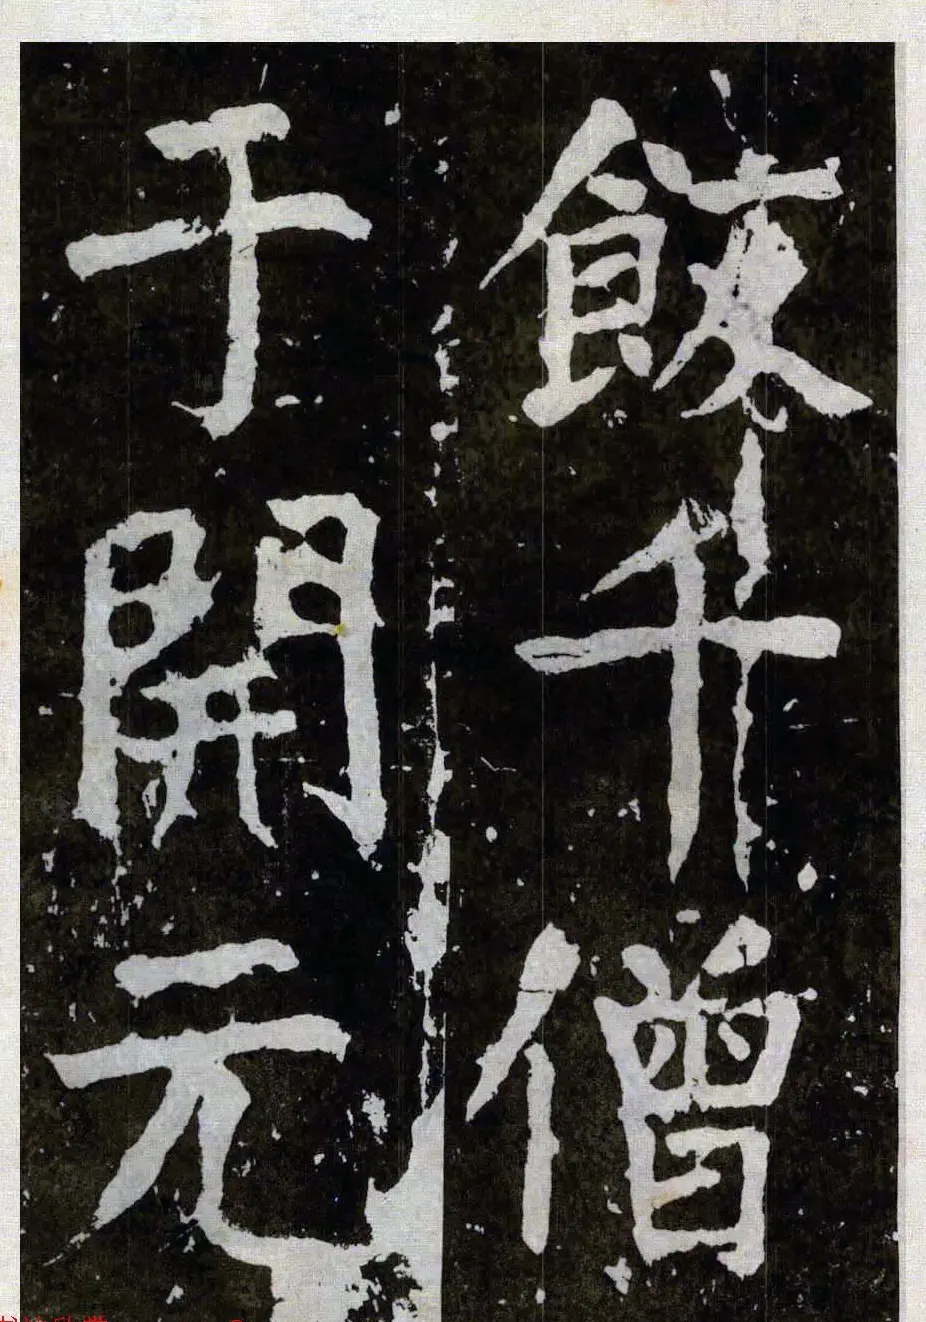 飯千僧
于開元